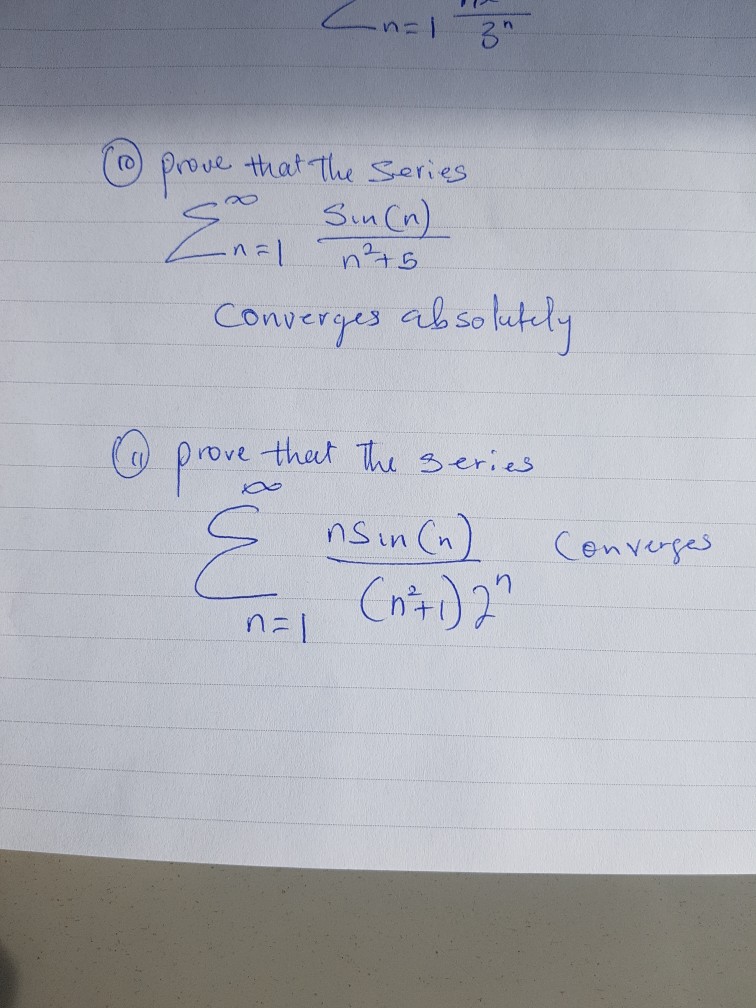 ∑n=1 3ⁿ
(10) prove that the series
∑∞n=1 Sin(n)/n²+5
Converges absolutely
(11) prove that the series
∑∞n=1 nSin(n)/(n²+1)2ⁿ Converges